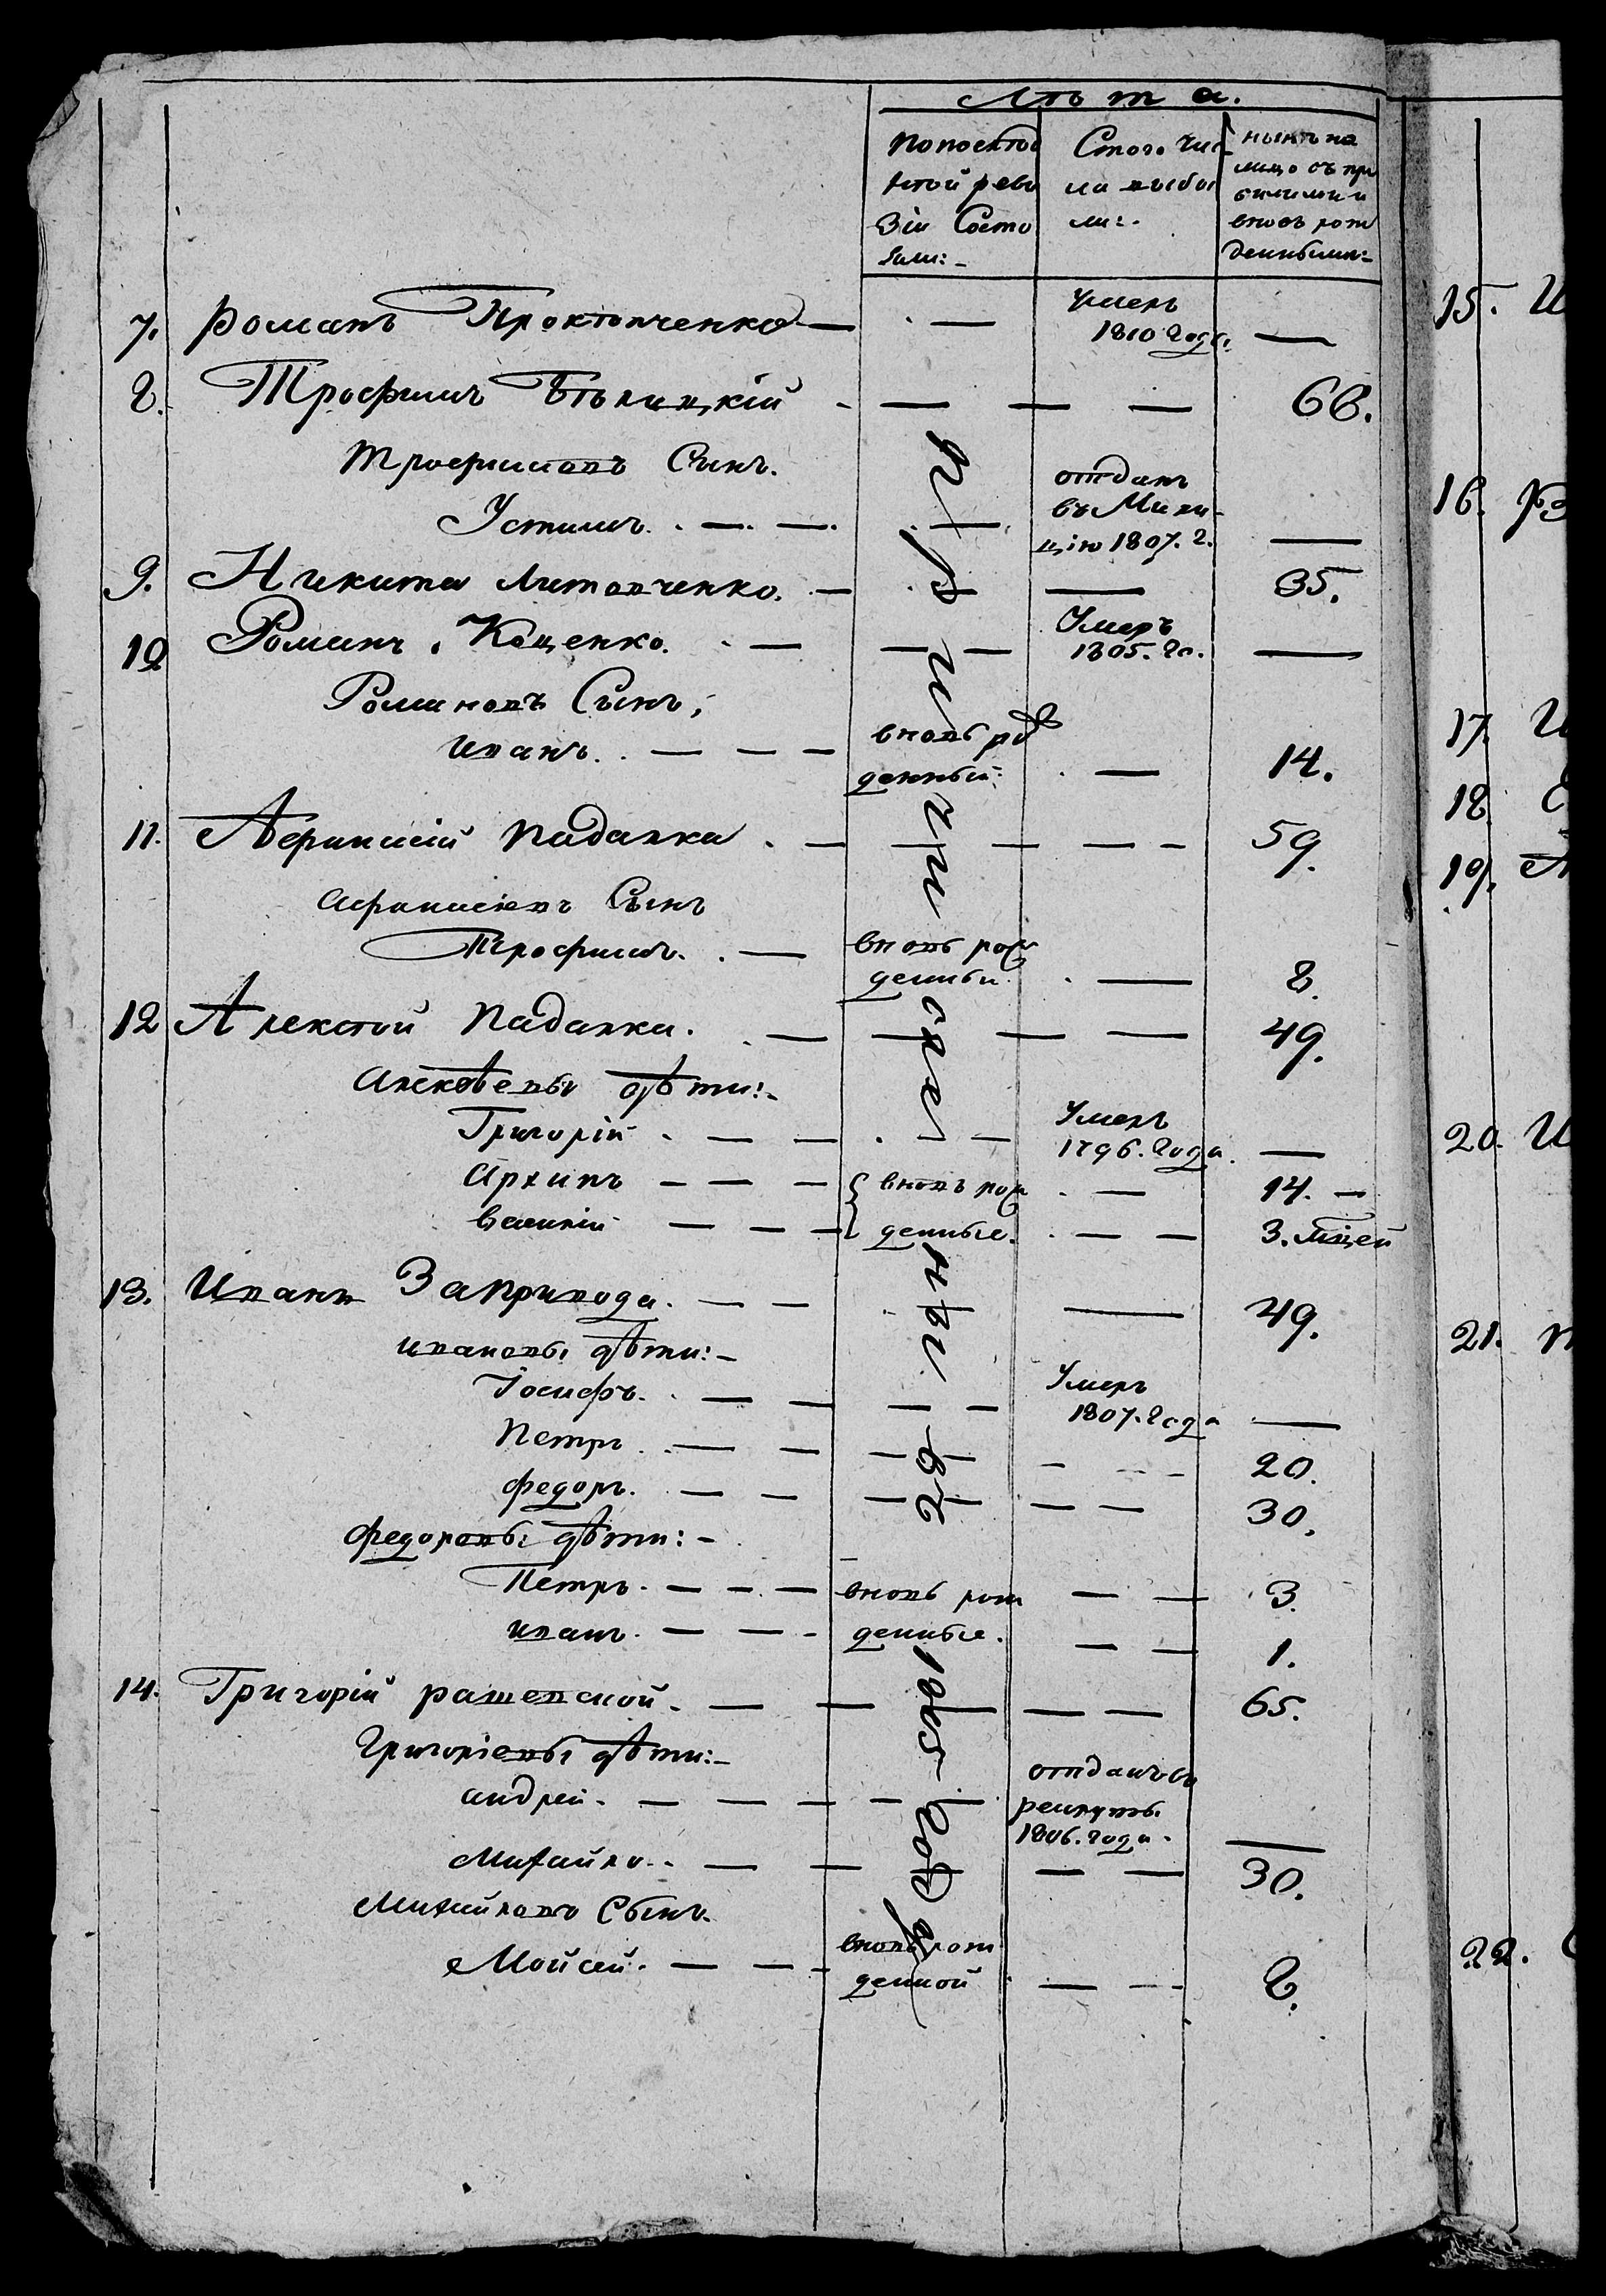 Лѣта.
попослѣд
нѣй реви
зіи Состо
яли:-
Стого Чис-
ла выбы
ли:-
нынѣ на
лицо съ при
былыми и
вновь рож
денными:-
7. Романъ Прокопченко — — Умеръ —
1810 Года.
8. Трофимъ Бѣлицкій - — — — 66.
Трофимовъ Сынъ.
Устимъ. — — отданъ
въ Мили-
цію 1807. г. —
9. Никита Литовченко. — — 35.
10 Романъ Коценко. — — Умеръ
1805. го. —
Романовъ Сынъ,
Иванъ. — — — вновь рож
денный: — 14.
11. Афанасій Падалка. — — — — 59.
Афанасіевъ Сынъ
Трофимъ. — вновь рож
денный — 8.
12 Алексѣй Падалка. — — — — 49.
Алексѣевы дѣти:-
Григорій — — — Умеръ
1796. Года. —
Архипъ — — — { вновь рож — 14. —
Василій — — — { денные. — — 3. мцей
13. Иванъ Запривода. — — — 49.
Ивановы дѣти:-
Іосифъ. — — — — Умеръ
1807. Года —
Петръ — — — — - - - 20.
Федоръ. — — — — — — 30.
Федоровы дѣти:-
Петръ. — — — вновь рож — — 3.
Иванъ. — — - денные. — — 1.
14. Григорій рашевской. — — — — 65.
Григоріевы дѣти:-
Андрей. — — — — — отданъ въ
рекруты
1806. года. —
Михайло. — — — — 30.
Михайловъ Сынъ.
Мойсей. — — - вновь рож
денной — — 8.
неписаные въ 1795 Года
15. И
16.
17. И
18.
19. А
20. И
21. П
22.